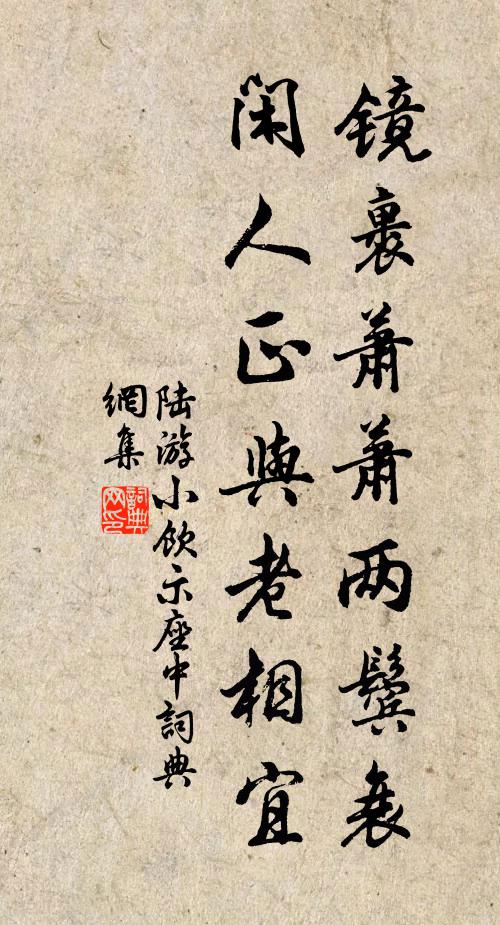 镜裏蕭蕭两鬓衰
閑人正與老相宜
陆游小飲示座中詞典
網集
詞典
网印